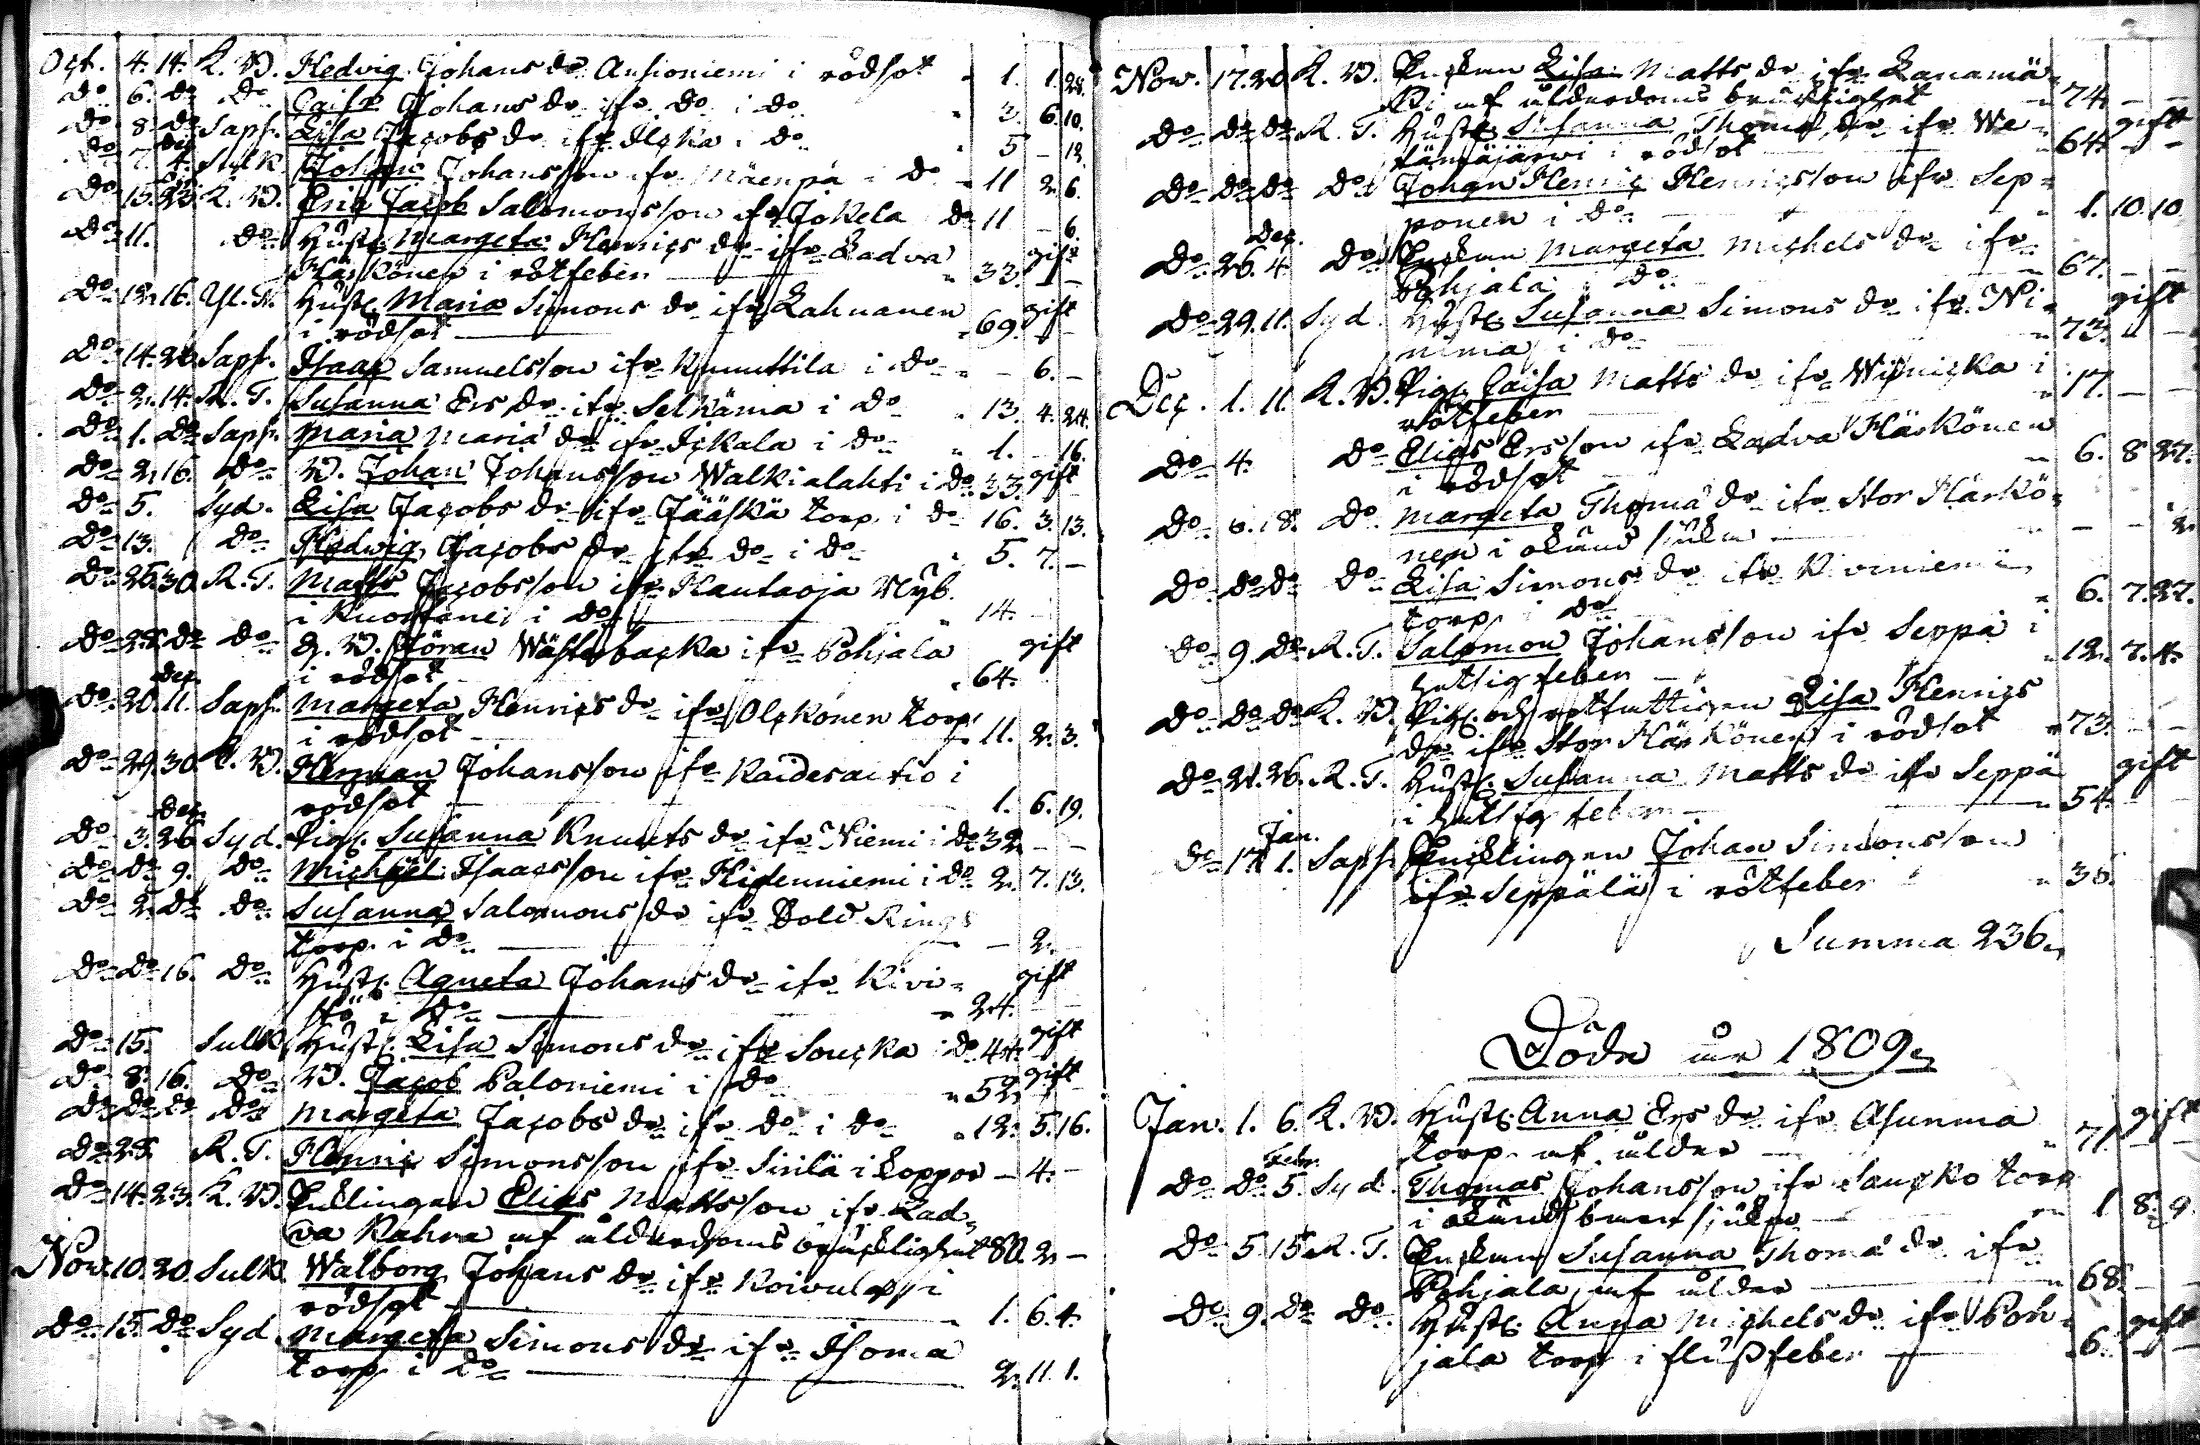 Oct. 4. 14. K. W. Hedvig Johans dr Ansioniemi i rödsot 1. 1. 28.
do 6. do do Caisa Johans dr ifr do i do 2. 6. 10.
do 8. do Sapf. Lisa Jacobs dr ifr Ilska i do 5 - 12.
do 7. 4. Sulk. Johan Johansson ifr Mäenpä i do 11 2. 6.
do 15. 23. K. W. Eric Jacob Salomonsson ifr Jokela do 11 - 6.
do 11. do Hust. Margeta Henrics dr ifr Ladva gift
Häskönen i rötfeber 33.
do 12. 16. Yl. Hust. Maria Simons dr ifr Kahnanen gift
i rödsot 69.
do 14. 26. Sapf. Isaac Samuelsson ifr Knuuttila i do - 6. -
do 2. 14. R. T. Susanna Ers dr ifr Selkäma i do 13. 4. 24.
do 1. do Sapf. Maria Maria dr ifr Iskala i do 1. - 16.
do 2. 16. do W. Johan Johansson Walkialahti i do 33. gift
do 5. Syd. Lisa Jacobs dr ifr Jääskä torp. i do 16. 3. 13.
do 13. do Hedwig Jacobs dr ifr do i do 5. 7. -
do 25. 30. R. T. Matts Jacobsson ifr Hautaoja Nyb.
i Kuortane i do 14.
do 28. do do G. W. Jöran Wästerbacka ifr Pohjala gift
i rödsot 64.
Dec.
do 20. 11. Sapf. Margeta Henrics dr ifr Olckonen torp
i rödsot 11. 2. 3.
do 29. 30. K. W. Herman Johansson ifr Kaidesautio i
rödsot 1. 6. 19.
Dec.
do 3. 26. Syd. Pig. Susanna Knuuts dr ifr Niemi i do 32 - -
do do 9. do Michael Isaacsson ifr Hidenniemi i do 2. 7. 13.
do 2. do do Susanna Salomons dr ifr Bold Rings
torp. i do - 2.
do do 16. do Hust. Agneta Johans dr ifr Kivi- gift
stö i do 24.
do 15. Sulk. Hust. Lisa Simons dr ifr Soucka i do 44. gift
do 8. 16. do W. Jacob Paloniemi i do 52. gift
do do do do Margeta Jacobs dr ifr do i do 12. 5. 16.
do 28. R. T. Henric Simonsson ifr Sirilä i koppor - 4. -
do 14. 23. K. W. Enklingen Elias Mattsson ifr Lad-
va Kahra af ålderdoms bräcklighet 80. 2. -
Nov. 10. 20. Sulk. Walborg Johans dr ifr Koivulassi
rödsot 1. 6. 4.
do 15. do Syd. Margeta Simons dr ifr Isoma
torp i do 2. 11. 1.
Nov. 17. 20. K. W. Enkan Lisa Matts dr ifr Lanamä-
ki af ålderdoms bräcklighet 74. - -
do do do R. T. Hust. Susanna Thomæ dr ifr We- gift
tämäjärvi i rödsot 64. - -
do do do do Johan Henric Henricsson ifr Sep-
ponen i do 1. 10. 10.
Dec.
do 26. 4. do Enkan Margeta Michels dr ifr
Pohjala i do 67. - -
do 29. 11. Syd. Hust. Susanna Simons dr ifr Ni- gift
nima i do 73. - -
Dec. 1. 11. K. W. Pig. Caisa Matts dr ifr Wisnicka i
rötfeber 17. - -
do 4. do Elias Ersson ifr Ladva Häskönen
i rödsot 6. 8 27.
do 6. 18. do Margeta Thomæ dr ifr Stor Härkö-
nen i okänd sjukd. - - 2.
do do do do Lisa Simons dr ifr Kiviniemi
torp i do 6. 7. 27.
do 9. do R. T. Salomon Johansson ifr Seppä i
hetsigfeber 12. 7. 4.
do do do K. W. Pig. och rotfattigen Lisa Henrics
dr ifr Stor Härkönen i rödsot 73. - -
do 21. 26. R. T. Hust. Susanna Matts dr ifr Seppä gift
i hetsig feber 54.
Jan.
do 17. 1. Sapf. Enklingen Johan Simonsson
ifr Seppälä i rötfeber 35.
Summa 236.
Döde år 1809.
Jan. 1. 6. K. W. Hust. Anna Ers dr ifr Asunma gift
torp. af ålder 71. -
Febr.
do do 5. Syd. Thomas Johansson ifr Saucko torp
i okänd barnsjukdo 1 8. 9
do 5. 15. R. T. Enkan Susanna Thomæ dr ifr
Pohjala af ålder 68. - -
do 9. do do Hust. Anna Michels dr ifr Poh- gift
jala torp i flußfeber 6. - -